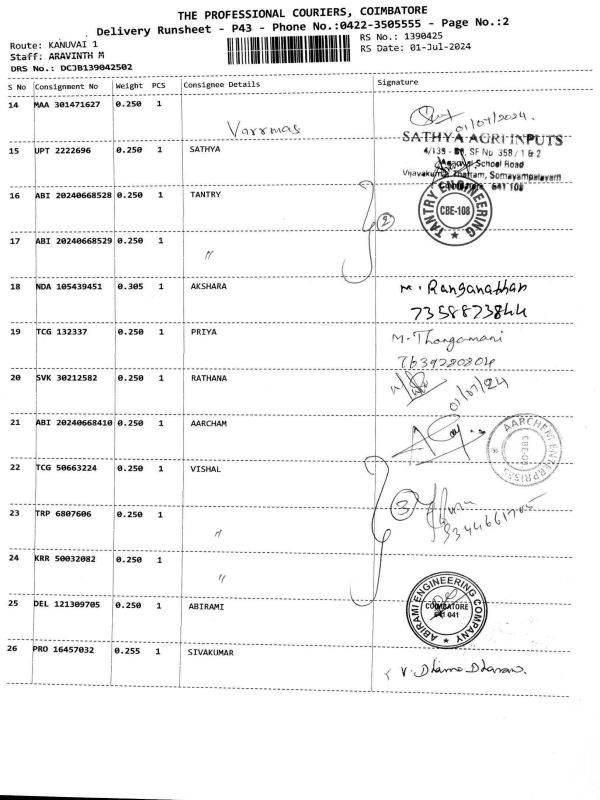 THE PROFESSIONAL COURIERS, COIMBATORE
Delivery Runsheet - P43 - Phone No.:0422-3505555 - Page No.:2
Route: KANUVAI 1
RS No.: 1390425
Staff: ARAVINTH M
RS Date: 01-Jul-2024
DRS No.: DCJB139042502
S No Consignment No Weight PCS Consignee Details Signature
14 MAA 301471627 0.250 1
Varrmas
01/07/2024.
15 UPT 2222696 0.250 1 SATHYA
SATHYA AGRI INPUTS
4/135 - SF No 358/1 & 2
School Road
Thottam, Somayampalayam
641 108
16 ABI 20240668528 0.250 1 TANTRY
2
TANTRY ENGINEERING
CBE-108
17 ABI 20240668529 0.250 1
"
18 NDA 105439451 0.305 1 AKSHARA
M. Ranganathan
7358873844
19 TCG 132337 0.250 1 PRIYA
M. Thangamani
7639280804
20 SVK 30212582 0.250 1 RATHANA
01/07/24
21 ABI 20240668410 0.250 1 AARCHAM
AARCHEM ENTERPRISES
22 TCG 50663224 0.250 1 VISHAL
3
23 TRP 6807606 0.250 1
"
24 KRR 50032082 0.250 1
"
25 DEL 121309705 0.250 1 ABIRAMI
ABIRAMI ENGINEERING COMPANY
COIMBATORE
641 041
26 PRO 16457032 0.255 1 SIVAKUMAR